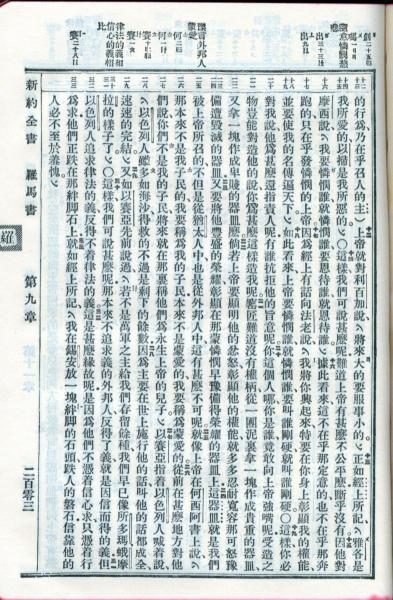 創二十五23
瑪一2 3
出三十三19
出九16
或作外邦人
何二23
何一10
賽十22
賽一9
律法的義相信心的義相比
賽二十八16
的行為乃在乎召人的主〉上帝就對利百加說〈將來大的要服事小的〉正如經上所記〈雅各是
我所愛的以掃是我所惡的〉〇這樣我們可說甚麼呢難道上帝有甚麼不公平麼斷乎沒有因他對
摩西說〈我要憐憫誰就憐憫誰要恩待誰就恩待誰〉據此看來這不在乎那定意的也不在乎那奔
跑的只在乎發憐憫的上帝因為經上有話向法老說〈我將你興起來特要在你身上彰顯我的權能
並要使我的名傳遍天下〉如此看來上帝要憐憫誰就憐憫誰要叫誰剛硬就叫誰剛硬〇這樣你必
對我說他為甚麼還指責人呢有誰抗拒他的旨意呢你這個人哪你是誰竟敢向上帝強嘴呢受造之
物豈能對造他的說你為甚麼這樣造我呢窰匠難道沒有權柄從一團泥裏拿一塊作成貴重的器皿
又拿一塊作成卑賤的器皿麼倘若上帝要顯明他的忿怒彰顯他的權能就多多忍耐寬容那可怒豫
備遭毀滅的器皿又要將他豐盛的榮耀彰顯在那蒙憐憫早豫備得榮耀的器皿上這器皿就是我們
被上帝所召的不但是從猶太人中也是從外邦人中這有甚麼不可呢就像上帝在何西阿書上說〈
那本來不是我子民的我要稱為我的子民本來不是蒙愛的我要稱為蒙愛的從前在甚麼地方對他
們說你們不是我的子民將來就在那裏稱他們為永生上帝的兒子〉以賽亞指着以色列人喊着說
〈以色列人雖多如海沙得救的不過是剩下的餘數因為主要在世上施行他的話叫他的話都成全
速速的完結〉又如以賽亞先前說過〈若不是萬軍之主給我們存留餘種我們早已像所多瑪蛾摩
拉的樣子了〉〇這樣我們可說甚麼呢那本來不追求義的外邦人反得了義就是因信而得的義但
以色列人追求律法的義反得不着律法的義這是甚麼緣故呢是因為他們不憑着信心求只憑着行
為求他們正跌在那絆腳石上就如經上所記〈我在錫安放一塊絆腳的石頭跌人的磐石信靠他的
人必不至於羞愧〉
新約全書 羅馬書 第九章 二百零三
羅